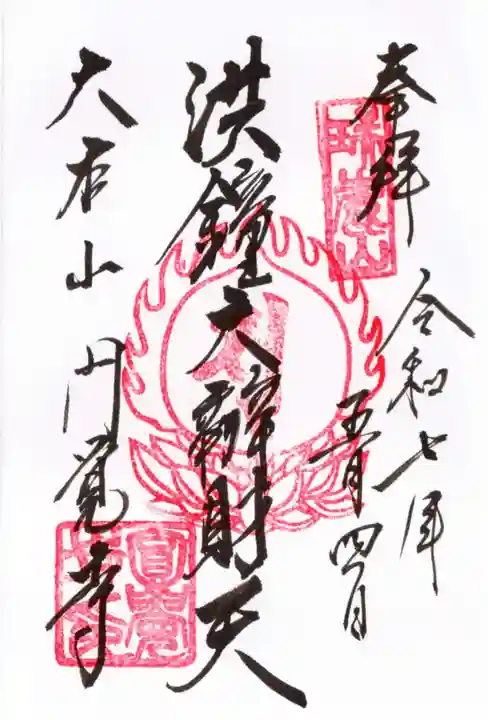 奉拝
令和七年
五月四日
洪鐘大辯財天
大本山円覚寺